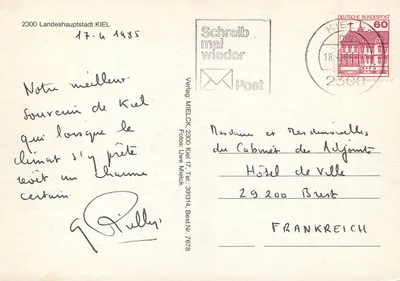 2300 Landeshauptstadt KIEL
17.4 1985
Notre meilleur
souvenir de Kiel
qui lorsque le
climat s'y prête
revêt un charme
certain.
Verlag: MIELCK, 2300 Kiel 17, Tel.: 391314, Best.Nr. 7678
Fotos: Uwe Mielck
Schreib
mal
wieder
Post
KIEL
18.
2300
DEUTSCHE BUNDESPOST
60
Mesdames et Mesdemoiselles
du Cabinet des Adjoints
Hôtel de Ville
29200 Brest
FRANKREICH